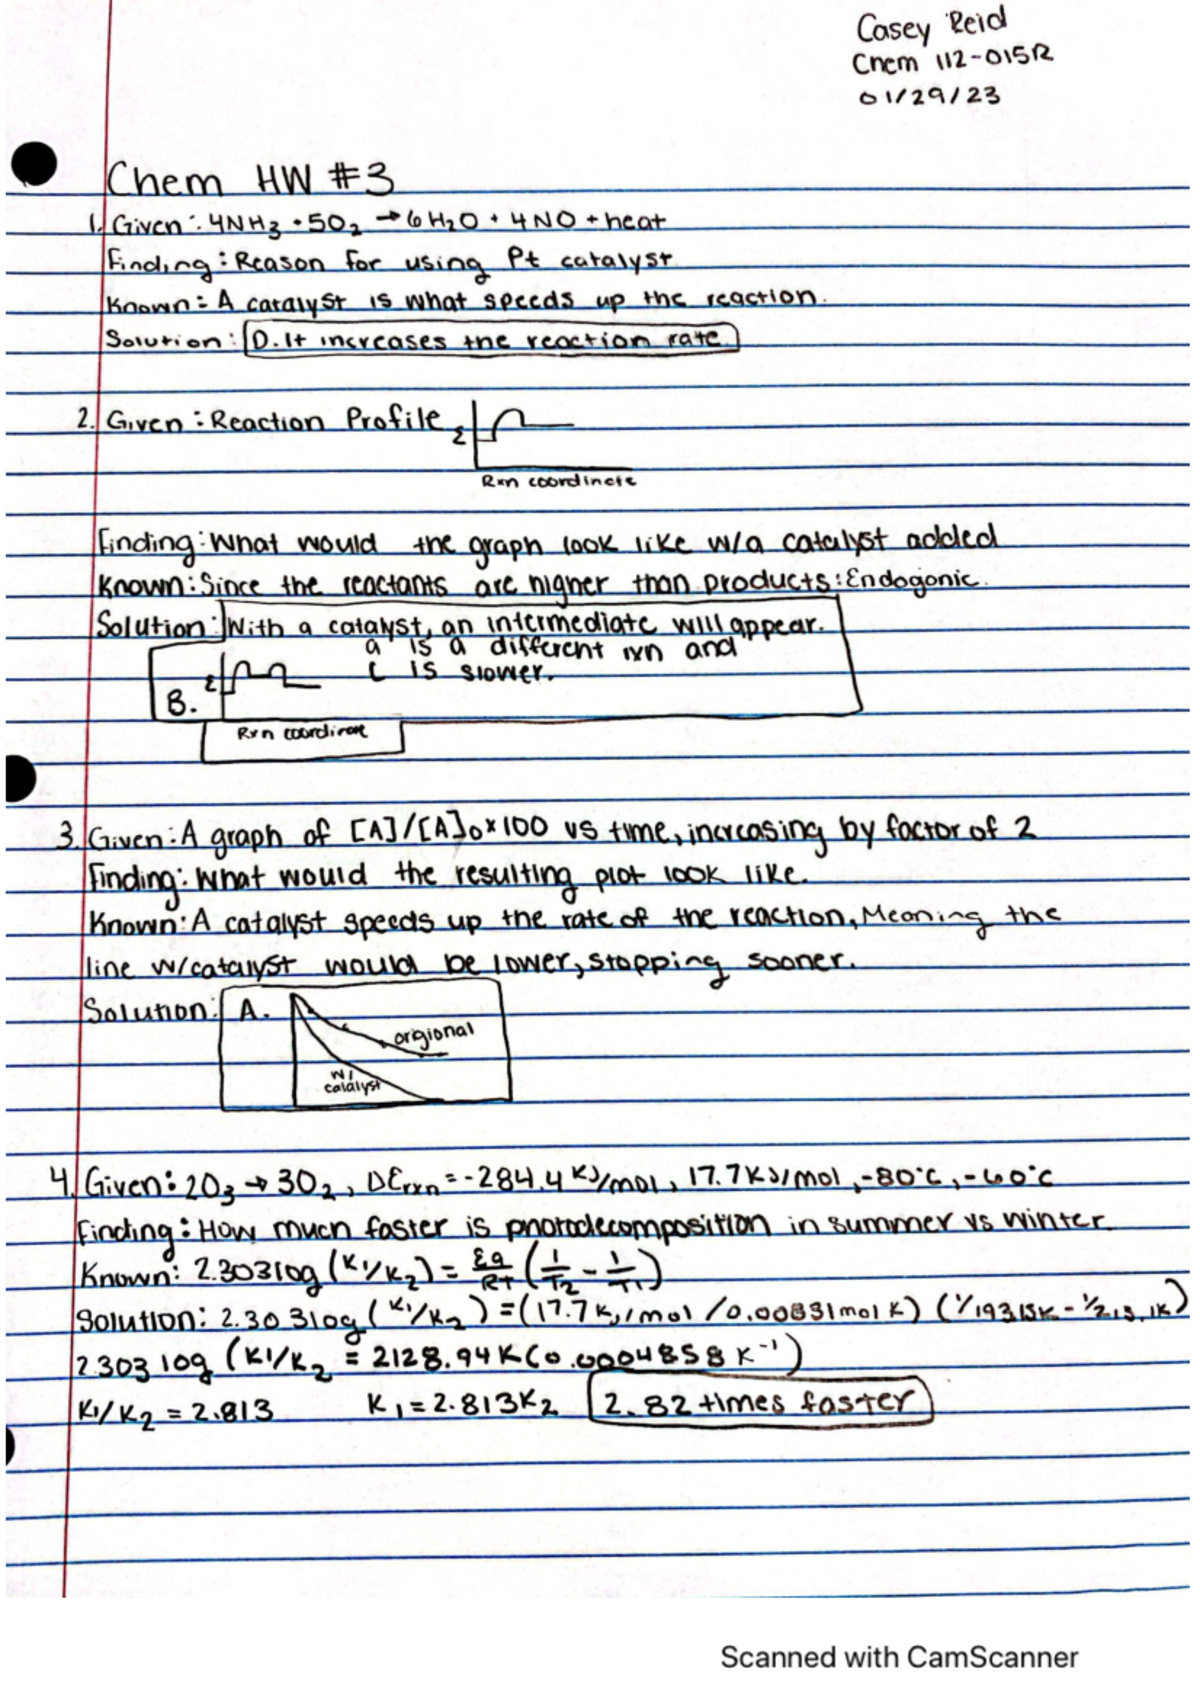 Casey Reid
Chem 112-015R
01/29/23
Chem HW #3
1. Given: 4NH₃ + 5O₂ → 6H₂O + 4NO + heat
Finding: Reason for using Pt catalyst.
Known: A catalyst is what speeds up the reaction.
Solution: D. It increases the reaction rate.
2. Given: Reaction Profile
E
Rxn coordinate
Finding: What would the graph look like w/a catalyst added
Known: Since the reactants are higher than products: Endogonic.
Solution: With a catalyst, an intermediate will appear.
a is a different rxn and
c is slower.
B. E
Rxn coordinate
3. Given: A graph of [A]/[A]₀ × 100 vs time, increasing by factor of 2
Finding: What would the resulting plot look like.
Known: A catalyst speeds up the rate of the reaction, Meaning the
line w/catalyst would be lower, stopping sooner.
Solution: A.
origional
w/
catalyst
4. Given: 2O₃ → 3O₂, ΔErxn = -284.4 KJ/mol, 17.7KJ/mol, -80°C, -60°C
Finding: How much faster is photodecomposition in summer vs winter.
Known: 2.303log (K₁/K₂) = Ea/RT (1/T₂ - 1/T₁)
Solution: 2.303log (K₁/K₂) = (17.7KJ/mol /0.00831mol K) (1/193.15K - 1/213.1K)
2.303 log (K₁/K₂ = 2128.94K(0.0004858 K⁻¹)
K₁/K₂ = 2.813 K₁ = 2.813K₂ 2.82 times faster
Scanned with CamScanner